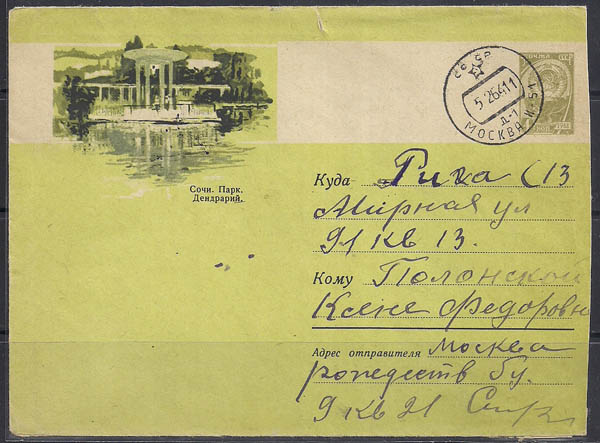 Сочи. Парк.
Дендрарий.
ПОЧТА СССР
СССР
5.2.64 11
Д-1
МОСКВА № 51
Куда Рига С 13
Мирная ул
91 кв 13.
Кому Полонской
Ксене Федоровн
Адрес отправителя Москва
рождеств бу.
9 кв 21